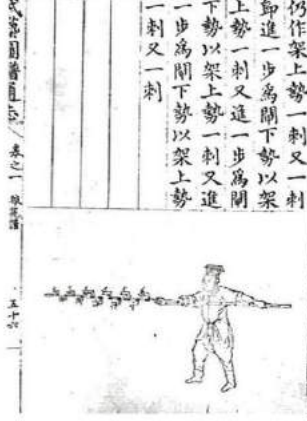 仍作架上勢一刺又一刺
即進一步爲閘下勢以架
上勢一刺又進一步爲閘
下勢以架上勢一刺又進
一步爲閘下勢以架上勢
一刺又一刺
武藝圖譜通志 卷之一 狼筅譜 五十六